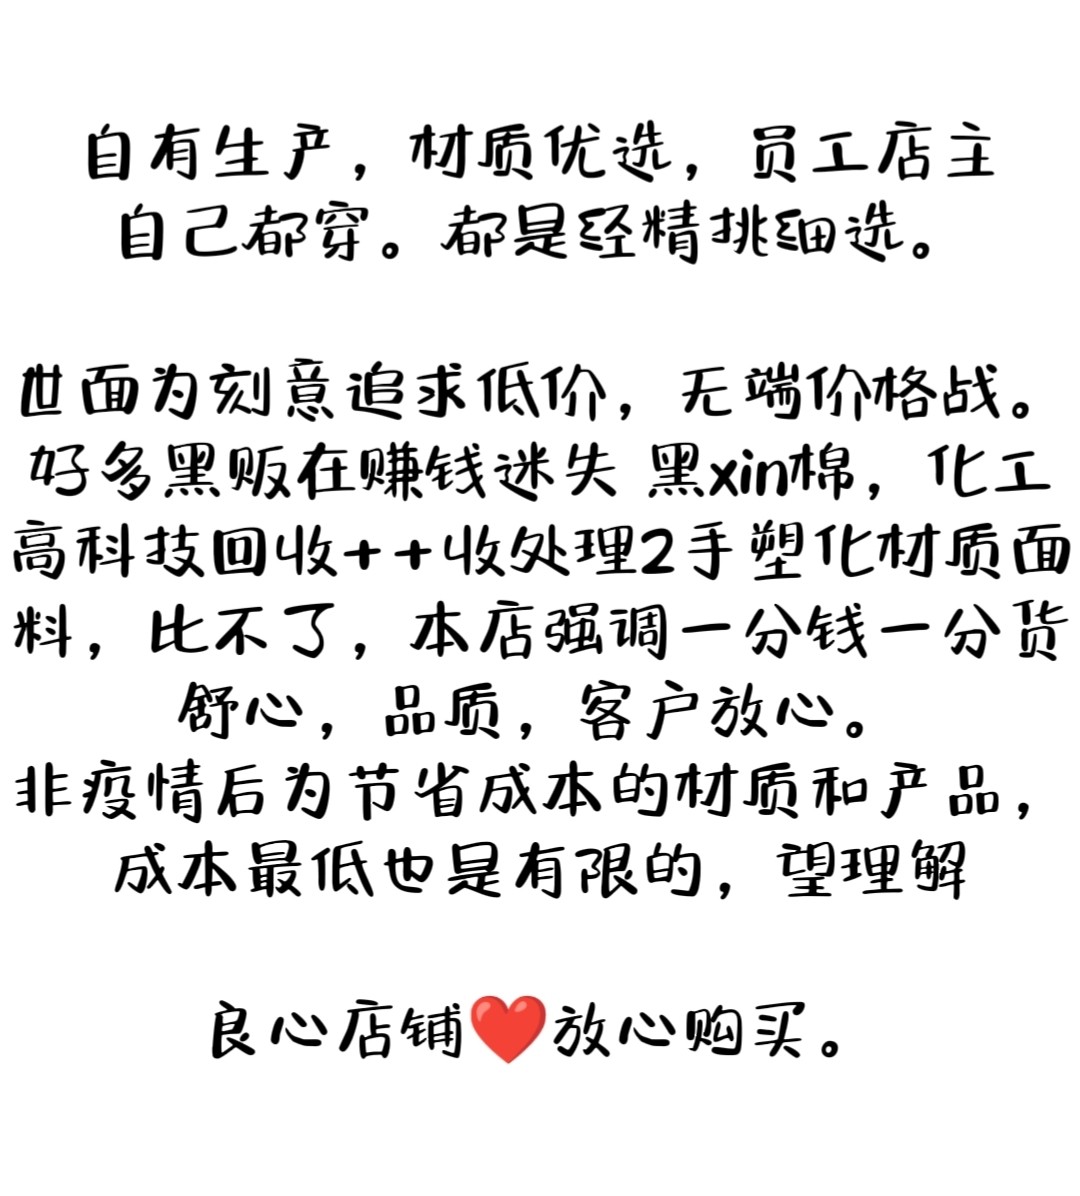 自有生产，材质优选，员工店主
自己都穿。都是经精挑细选。
世面为刻意追求低价，无端价格战。
好多黑贩在赚钱迷失 黑xin棉，化工
高科技回收++收处理2手塑化材质面
料，比不了，本店强调一分钱一分货
舒心，品质，客户放心。
非疫情后为节省成本的材质和产品，
成本最低也是有限的，望理解
良心店铺❤️放心购买。